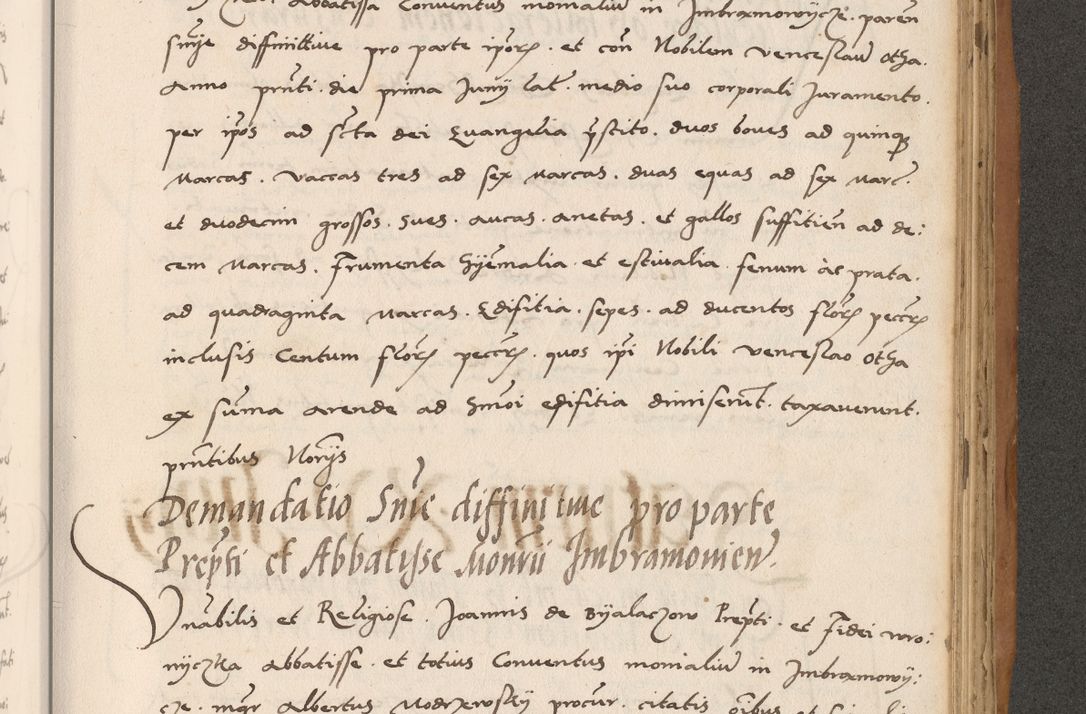 Abbatissa Conventus monialiū in Imbramowycze. paren
snīje diffinittiue pro parte ip̄orꝫ. et con̄ Nobilem venceslau͞ otha.
Anno prn̄ti. die prima Junij lat̄. medio suo corporali Juramento.
per ip̄os ad sc̄ta dei Euangelia p̄stito. duos boues ad quinqꝫ
Marcas. vaccas tres ad sex Marcas. duas equas ad sex Marc̄.
et duodecim grossos. Sues. Aucas. Anetas. et gallos suffitien̄ ad de:
cem Marcas. Frumenta Hyēmalia. et estiualia. fenum ac prata.
ad quadraginta Marcas. Edifitia. sepes. ad ducentos flōrꝫ peccr̄ꝫ
inclusis Centum flōrꝫ peccr̄ꝫ. quos ip̄i Nobili venceslao otha
ex sum̄a Arende ad Hm̄oi edifitia dimiserūt. taxauerunt.
prn̄tibus Nor̄ijs
Demandatio Snīe diffinitiue pro parte
Prep̄ti et Abbatisse Mon̄rii Imbramouien̄.
Vn̄abilis et Religiose. Joannis de Byalaczow Prep̄ti. et Fidei woro:
nyczka Abbatisse. et totius Conventus monialiū in Imbramowy:
cze. mgr̄ Albertus Modrzewsky procur̄. citatis om̄ibus et